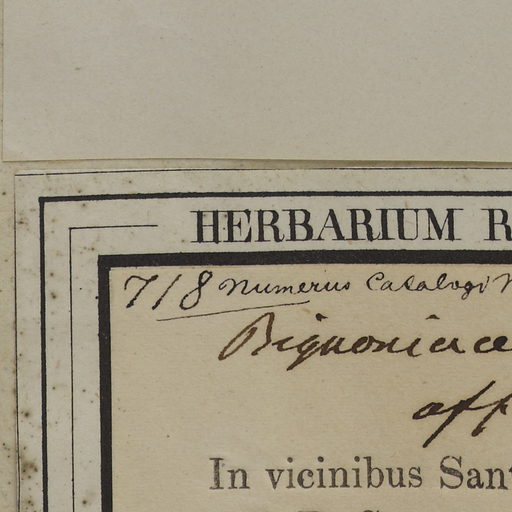 HERBARIUM R
718 Numerus Catalogi
Bignoniace
aff
In vicinibus Sant